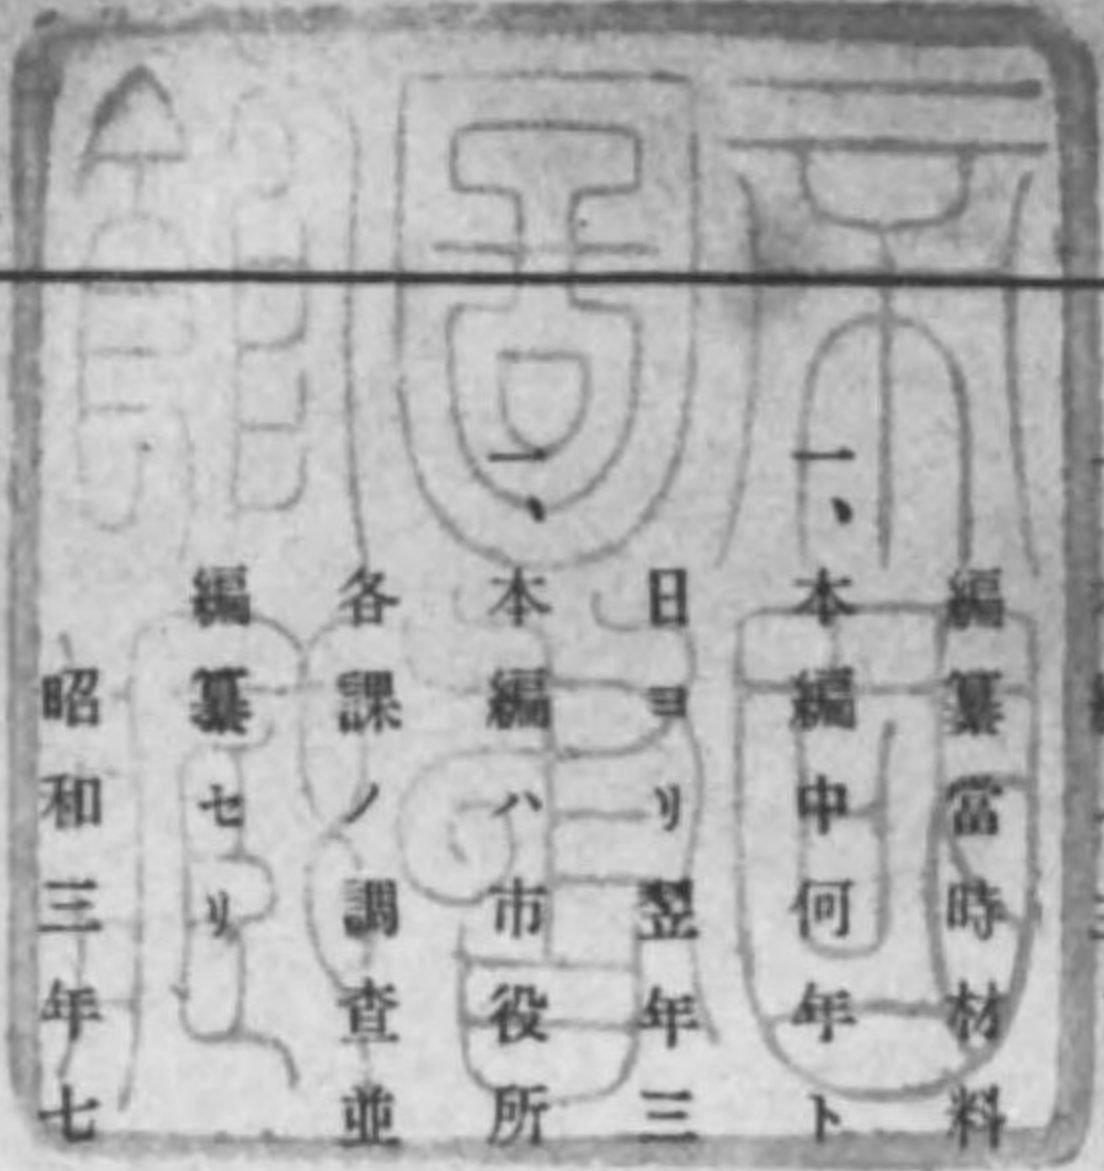 編纂當時材料
一、本編中何年ト
日ヨリ翌年三
一、本編ハ市役所
各課ノ調査並
編纂セリ
昭和三年七
帝國圖書館藏